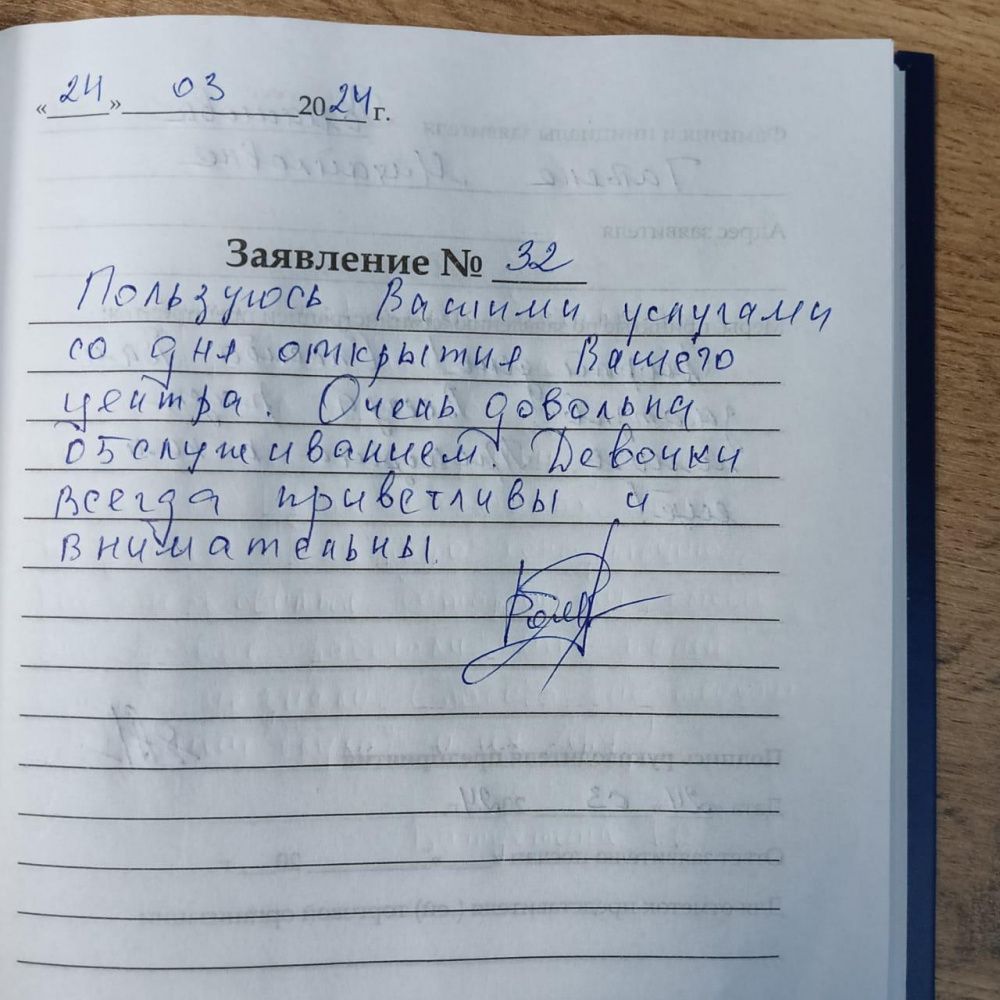 «24» 03 2024 г.
Заявление № 32
Пользуюсь Вашими услугами
со дня открытия Вашего
центра. Очень довольна
обслуживанием. Девочки
всегда приветливы и
внимательны.